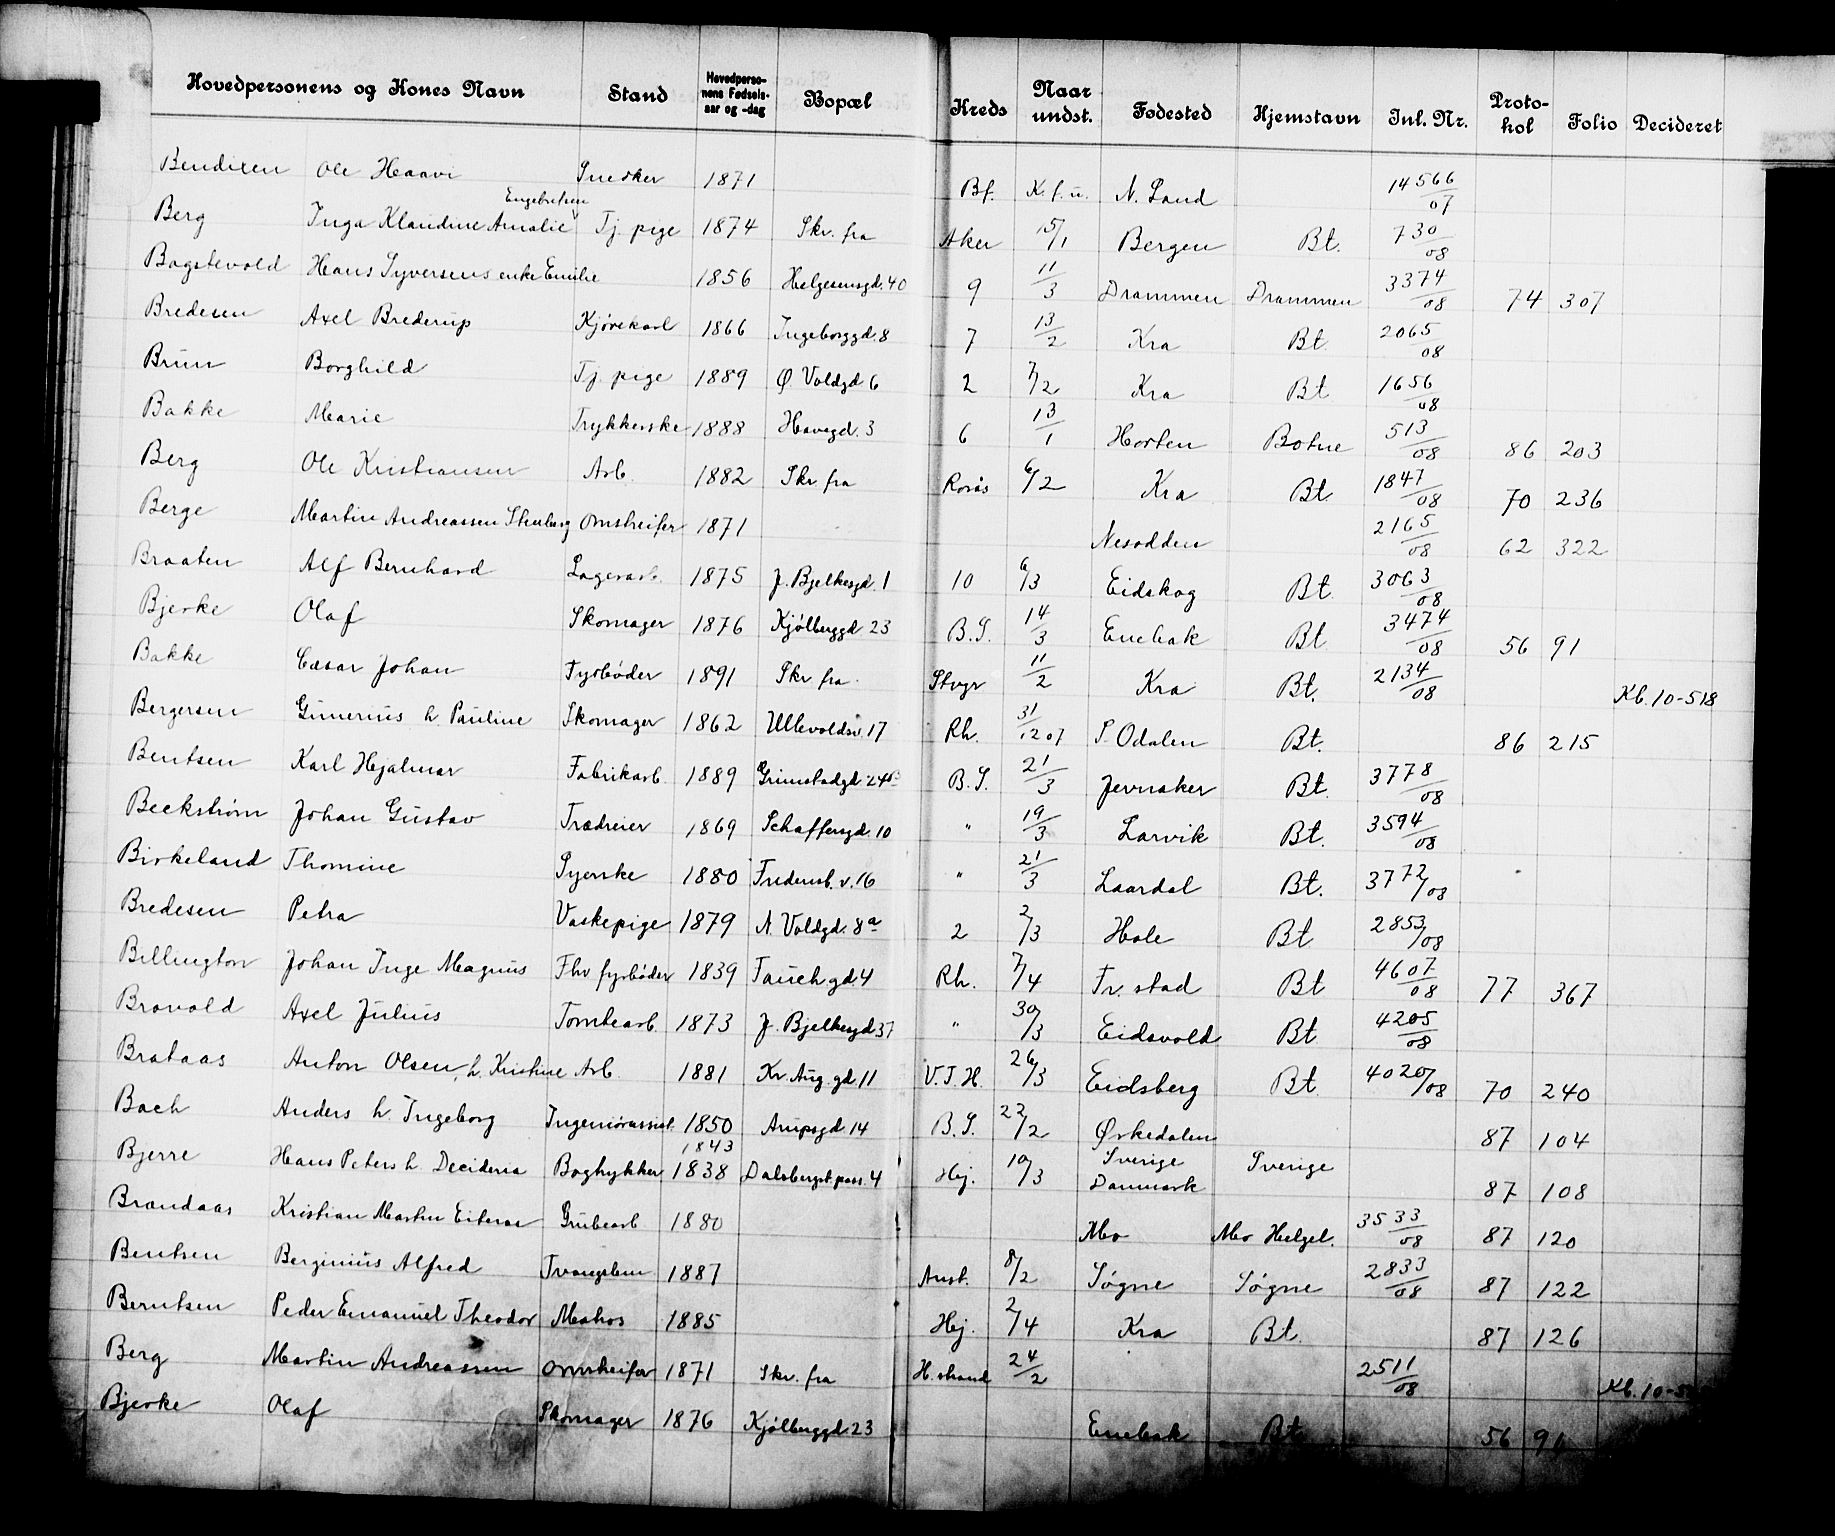 Hovedpersonens og Kones Navn Stand Hovedpersonens Fødselsaar og -dag Bopæl Kreds Naar undst. Fødested Hjemstavn Inl. Nr. Protokol Folio Decideret
Bendixen Ole Haavi Snedker 1871 Bf. K.f.u. N. Land 14566/07
Engebretsen
Berg Inga Klaudine Amalie Tj. pige 1874 Skr. fra Aker 15/1 Bergen Bt. 730/08
Bagstevold Hans Syversens enke Emilie 1856 Helgesensgd. 40 9 11/3 Drammen Drammen 3374/08 74 307
Bredesen Axel Brederup Kjørekarl 1866 Ingeborggd. 8 7 13/2 Kra Bt. 2065/08
Brun Borghild Tj. pige 1889 Ø. Voldgd 6 2 7/2 Kra Bt 1656/08
Bakke Marie Trykkerske 1888 Havegd. 3 6 13/1 Horten Botne 513/08 86 203
Berg Ole Kristiansen Arb. 1882 Skr fra Rorås 6/2 Kra Bt 1847/08 70 236
Berge Martin Andreassen Stenberg Omstreifer 1871 Nesodden 2165/08 62 322
Braaten Alf Bernhard Lagerarb. 1875 J. Bjelkesgd. 1 10 6/3 Eidskog Bt. 3063/08
Bjerke Olaf Skomager 1876 Kjølberggd 23 B.S. 14/3 Enebak Bt. 3474/08 56 91
Bakke Cæsar Johan Fyrbøder 1891 Skr fra Stvgr 11/2 Kra Bt. 2134/08 Kb. 10-518
Bergersen Gunerius h Pauline Skomager 1862 Ullevoldsv. 17 Rh. 31/12 07 S. Odalen Bt. 86 215
Bentsen Karl Hjalmar Fabrikarb. 1889 Grimstadgd 24 B.S. 21/3 Jevnaker Bt. 3778/08
Beckstrøm Johan Gustav Trædreier 1869 Schaffersgd. 10 " 19/3 Larvik Bt. 3594/08
Birkeland Thomine Syerske 1880 Fredensb. v. 16 " 21/3 Laardal Bt. 3772/08
Bredesen Petra Vaskepige 1879 N. Voldgd. 8a 2 2/3 Hole Bt 2853/08
Billington Johan Inge Magnus Fhv fyrbøder 1839 Tauchgd. 4 Rh. 7/4 Fr. stad Bt 4607/08 77 367
Bravold Axel Julius Tomtearb. 1873 J. Bjelkesgd 37 " 30/3 Eidsvold Bt 4205/08
Brataas Anton Olsen, h. Kristine Arb. 1881 Kr. Aug. gd. 11 V.T.H. 26/3 Eidsberg Bt. 4020/08 70 240
Bach Anders h. Ingeborg Ingeniørassist. 1850 Arupsgd 14 B.S. 22/2 Ørkedalen 87 104
1843 Sverige
Bjerre Hans Peters h. Decideria Bogtrykker 1838 Dalsbergst. pass. 4 Hej. 10/3 Danmark Sverige 87 108
Brandaas Kristian Martin Eiteraa Grubearb 1880 Mo Mo Helgel. 3533/08 87 120
Bentsen Berginius Alfred Tvangslem 1887 Anst. 8/2 Søgne Søgne 2833/08 87 122
Berntsen Peder Emanuel Theodor Matros 1885 Hej. 2/4 Kra Bt. 87 126
Berg Martin Andreassen Omstreifer 1871 Skr. fra H.strand 24/2 2511/08 Kb. 10-5
Bjerke Olaf Skomager 1876 Kjølberggd. 23 Enebak Bt 56 91